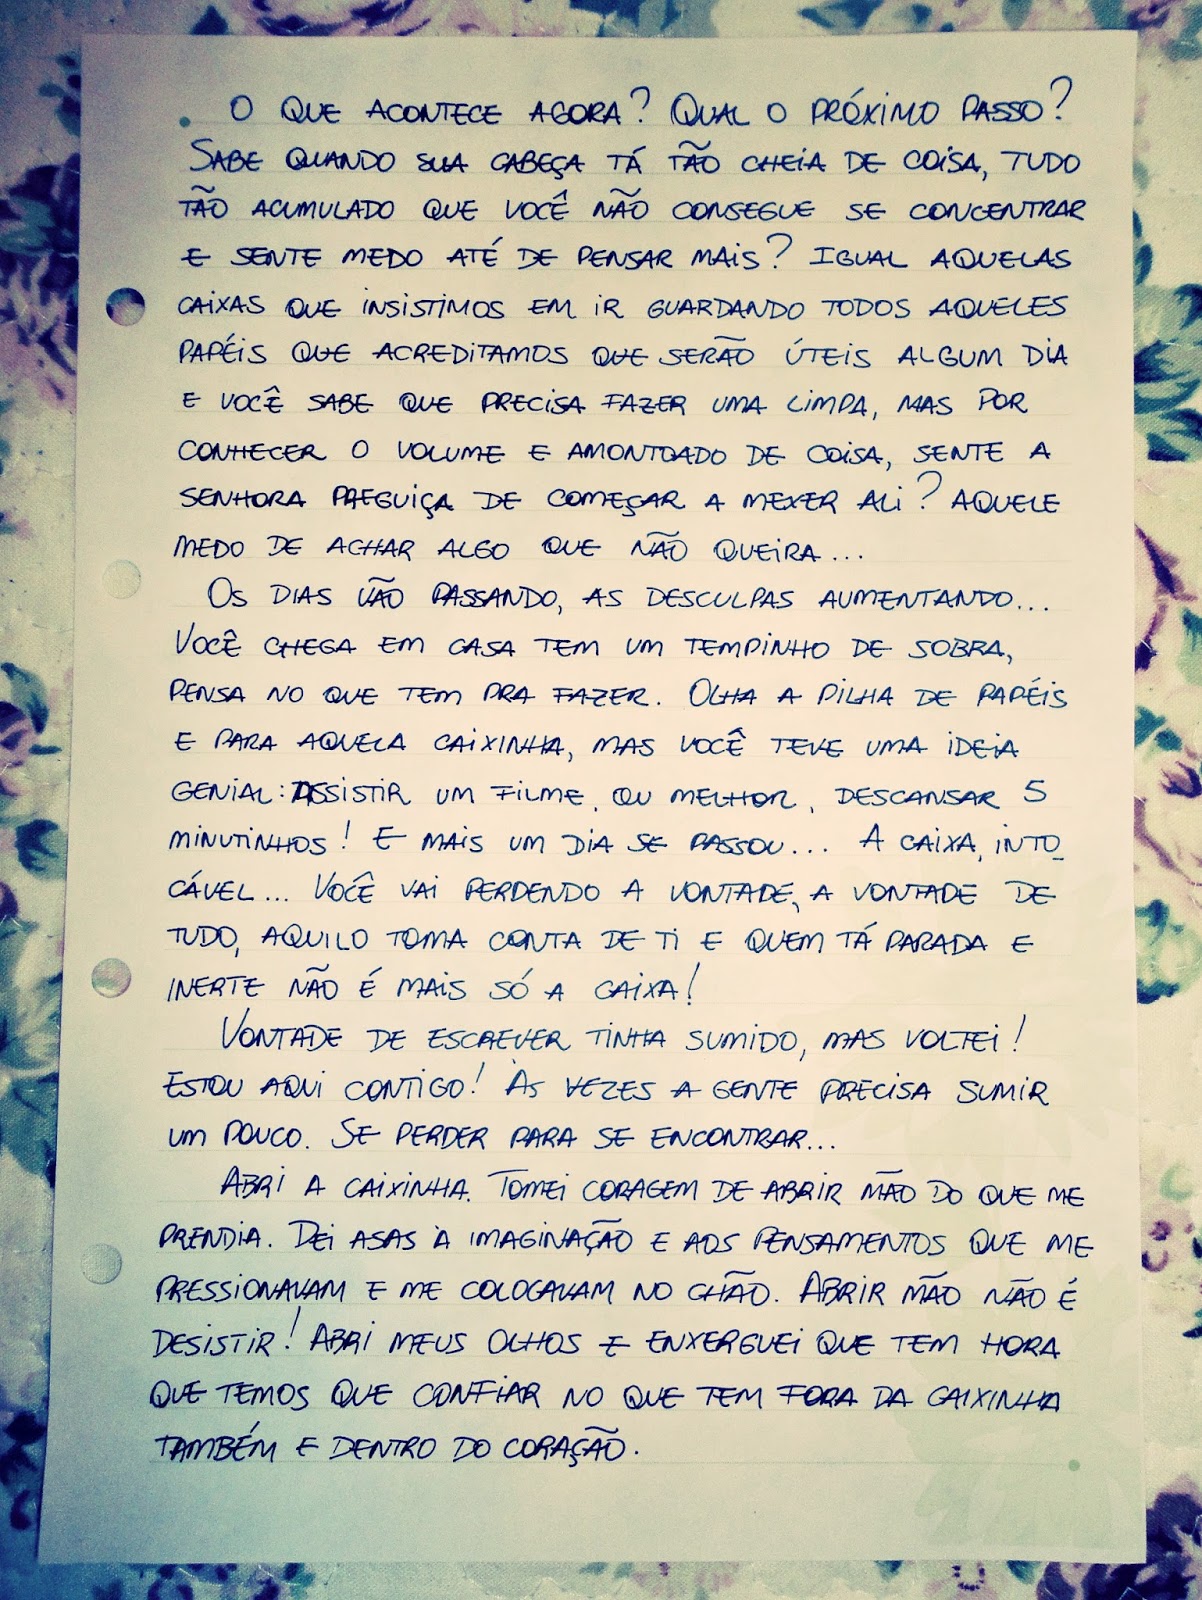 O QUE ACONTECE AGORA? QUAL O PRÓXIMO PASSO?
SABE QUANDO SUA CABEÇA TÁ TÃO CHEIA DE COISA, TUDO
TÃO ACUMULADO QUE VOCÊ NÃO CONSEGUE SE CONCENTRAR
E SENTE MEDO ATÉ DE PENSAR MAIS? IGUAL AQUELAS
CAIXAS QUE INSISTIMOS EM IR GUARDANDO TODOS AQUELES
PAPÉIS QUE ACREDITAMOS QUE SERÃO ÚTEIS ALGUM DIA
E VOCÊ SABE QUE PRECISA FAZER UMA LIMPA, MAS POR
CONHECER O VOLUME E AMONTOADO DE COISA, SENTE A
SENHORA PREGUIÇA DE COMEÇAR A MEXER ALI? AQUELE
MEDO DE ACHAR ALGO QUE NÃO QUEIRA...
OS DIAS VÃO PASSANDO, AS DESCULPAS AUMENTANDO...
VOCÊ CHEGA EM CASA TEM UM TEMPINHO DE SOBRA,
PENSA NO QUE TEM PRA FAZER. OLHA A PILHA DE PAPÉIS
E PARA AQUELA CAIXINHA, MAS VOCÊ TEVE UMA IDEIA
GENIAL: ASSISTIR UM FILME, OU MELHOR, DESCANSAR 5
MINUTINHOS! E MAIS UM DIA SE PASSOU... A CAIXA, INTO_
CÁVEL... VOCÊ VAI PERDENDO A VONTADE, A VONTADE DE
TUDO, AQUILO TOMA CONTA DE TI E QUEM TÁ PARADA E
INERTE NÃO É MAIS SÓ A CAIXA!
VONTADE DE ESCREVER TINHA SUMIDO, MAS VOLTEI!
ESTOU AQUI CONTIGO! ÀS VEZES A GENTE PRECISA SUMIR
UM POUCO. SE PERDER PARA SE ENCONTRAR...
ABRI A CAIXINHA. TOMEI CORAGEM DE ABRIR MÃO DO QUE ME
PRENDIA. DEI ASAS À IMAGINAÇÃO E AOS PENSAMENTOS QUE ME
PRESSIONAVAM E ME COLOCAVAM NO CHÃO. ABRIR MÃO NÃO É
DESISTIR! ABRI MEUS OLHOS E ENXERGUEI QUE TEM HORA
QUE TEMOS QUE CONFIAR NO QUE TEM FORA DA CAIXINHA
TAMBÉM E DENTRO DO CORAÇÃO.